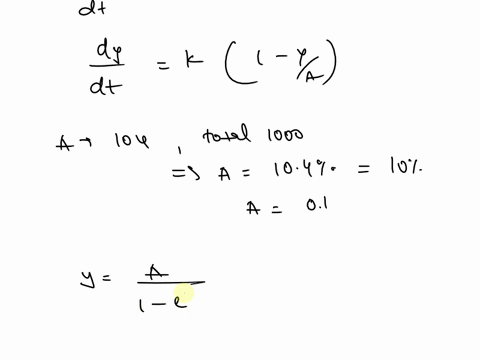 dt
dy/dt = k (1 - y/A)
A → 104 , total 1000
=> A = 10.4% = 10%
A = 0.1
y = A/(1 - e